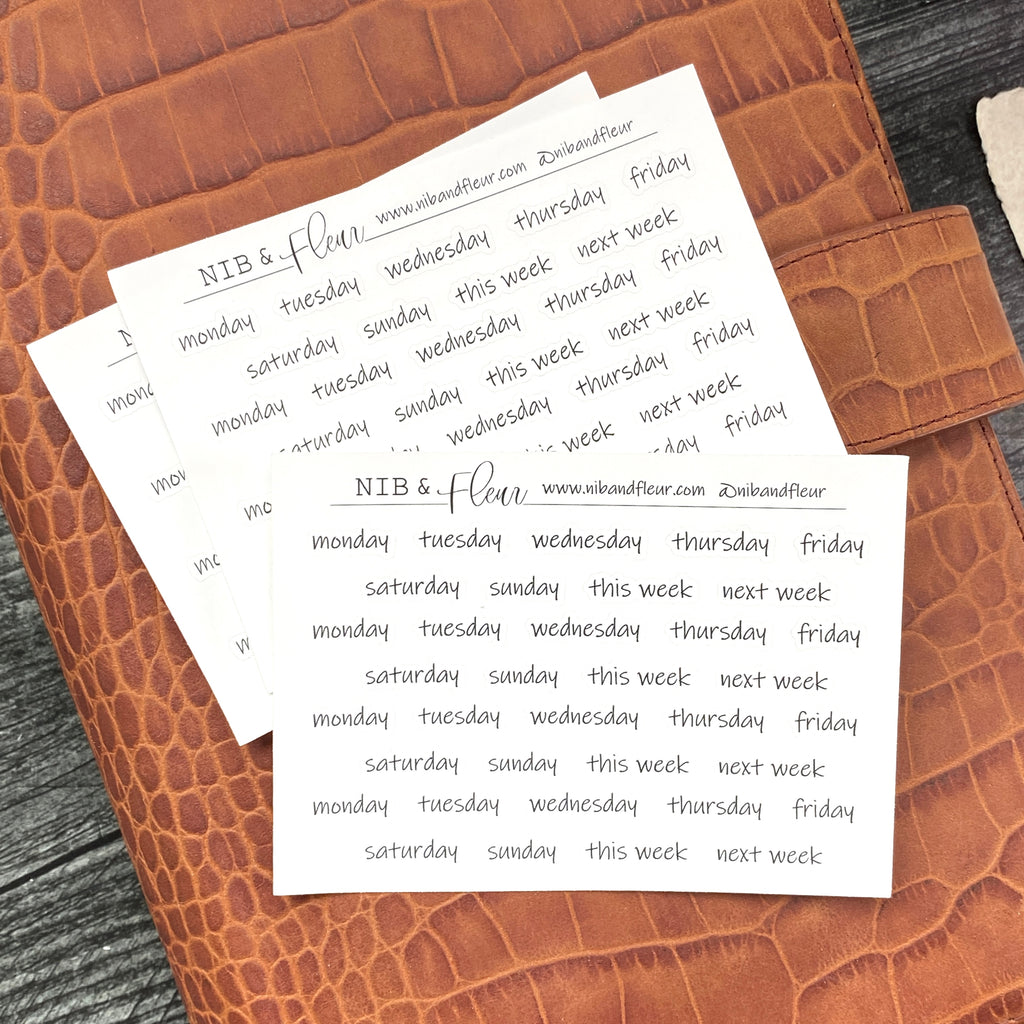 NIB & Fleur www.nibandfleur.com @nibandfleur
monday tuesday wednesday thursday friday
saturday sunday this week next week
monday tuesday wednesday thursday friday
saturday sunday this week next week
wednesday thursday friday
this week next week
friday
NIB & Fleur www.nibandfleur.com @nibandfleur
monday tuesday wednesday thursday friday
saturday sunday this week next week
monday tuesday wednesday thursday friday
saturday sunday this week next week
monday tuesday wednesday thursday friday
saturday sunday this week next week
monday tuesday wednesday thursday friday
saturday sunday this week next week